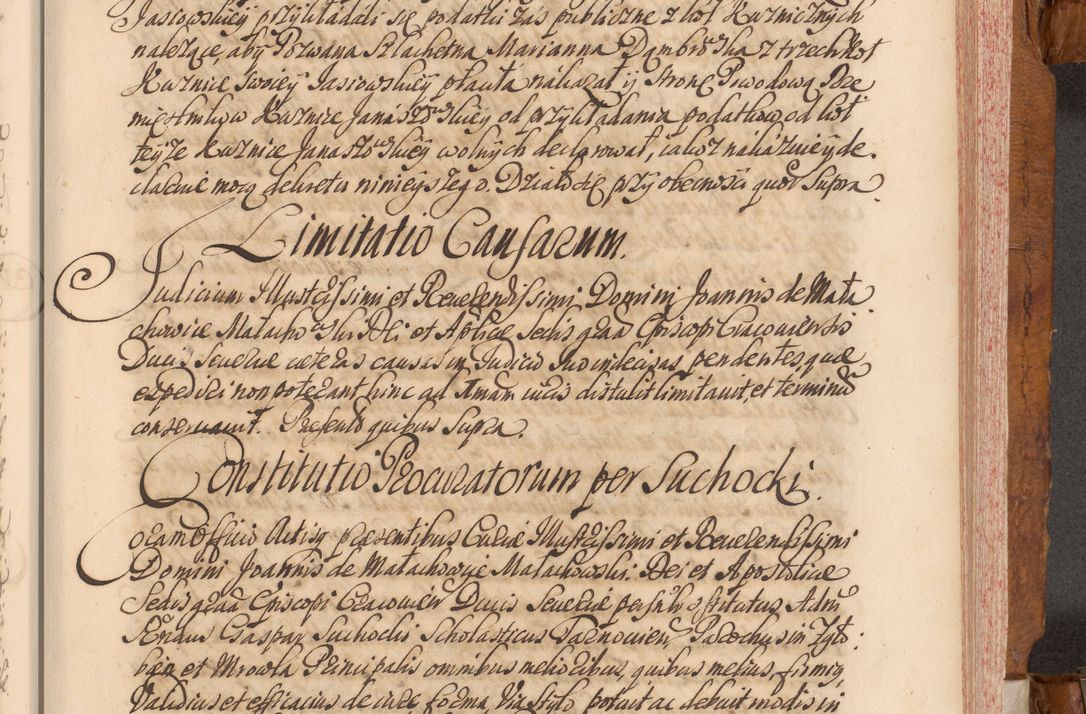 Jasiowskiey przykładali się podatki zaś publiczne z kół Kuznicznych
należące, aby Pozwana Szlachetna Marianna Dąmbrowska z trzech kół
Kuznice swoiey Jasiowskiey płaciła nakazał ÿ Stronę Powodową Pie
niążników Kuznice Janaszowskiey od przykładania podatków od kół
teyże Kuznice Janaszowskiey wolnych deklarował, iakoż nakazuie y de
claruie mocą dekretu ninieyszego. Działo się przy obecności quor Supra
Limitatio Causarum.
Judicium Illustrissimi et Reverendissimi Domini Joannis de Mała
chowice Małachowski Dei et Aplicæ Sedis graã Episcopi Cracoviensis
Ducis Severiæ cæteras causas in Judicio suo indecisas pendentes quæ
expediri non poterant hinc ad Imam iuris distulit limitavit, et terminũ
conservavit. Præsentib quibus Supra.
Constitutio Procuratorum per Suchocki.
Coram Officio Actisq præsentibus Curiæ Illustrissimi et Reverendissimi
Domini Joannis de Małachowice Małachowski Dei et Apostolicæ
Sedis graã Episcopi Cracovien Ducis Severiæ persnlr cstitutus Adm
Rndus Caspar Suchocki Scholasticus Tarnovien, Parochus in Zyto
et Mrowla Principalis omnibus melioribus, quibus melius, firmiq,
Validius et efficacius de iure forma, Via stylo potuit ac debuit modis in